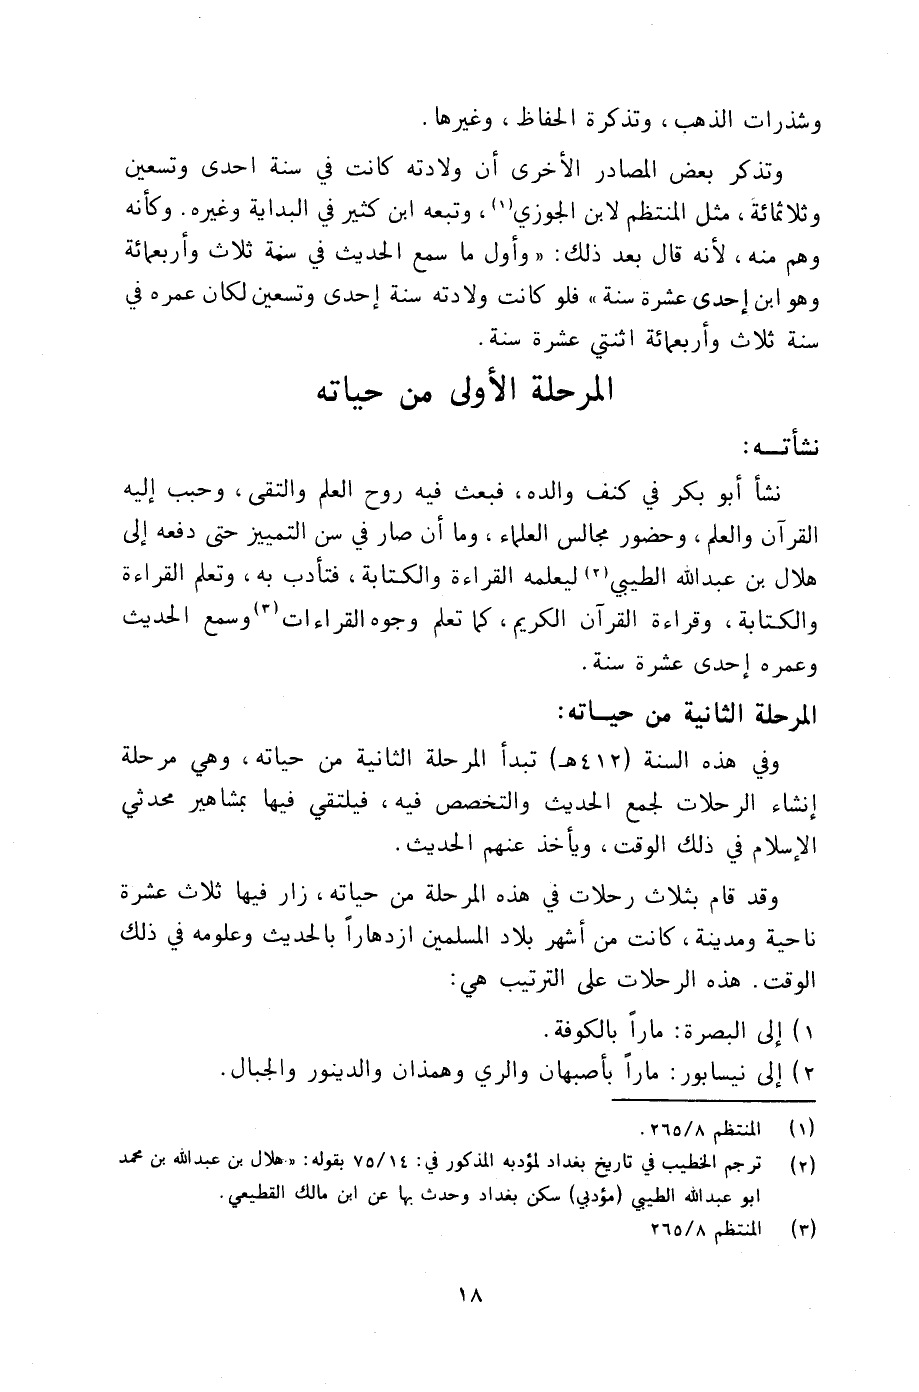 وشذرات الذهب، وتذكرة الحفاظ، وغيرها.
وتذكر بعض المصادر الأخرى أن ولادته كانت في سنة احدى وتسعين
وثلاثمائة، مثل المنتظم لابن الجوزي(١)، وتبعه ابن كثير في البداية وغيره. وكأنه
وهم منه، لأنه قال بعد ذلك: «وأول ما سمع الحديث في سنة ثلاث وأربعمائة
وهو ابن إحدى عشرة سنة» فلو كانت ولادته سنة إحدى وتسعين لكان عمره في
سنة ثلاث وأربعمائة اثنتي عشرة سنة.
المرحلة الأولى من حياته
نشأتــه:
نشأ أبو بكر في كنف والده، فبعث فيه روح العلم والتقى، وحبب إليه
القرآن والعلم، وحضور مجالس العلماء، وما أن صار في سن التمييز حتى دفعه إلى
هلال بن عبدالله الطيبي(٢) ليعلمه القراءة والكتابة، فتأدب به، وتعلم القراءة
والكتابة، وقراءة القرآن الكريم، كما تعلم وجوه القراءات(٣) وسمع الحديث
وعمره إحدى عشرة سنة.
المرحلة الثانية من حيــاته:
وفي هذه السنة (٤١٢هـ) تبدأ المرحلة الثانية من حياته، وهي مرحلة
إنشاء الرحلات لجمع الحديث والتخصص فيه، فيلتقي فيها بمشاهير محدثي
الإسلام في ذلك الوقت، ويأخذ عنهم الحديث.
وقد قام بثلاث رحلات في هذه المرحلة من حياته، زار فيها ثلاث عشرة
ناحية ومدينة، كانت من أشهر بلاد المسلمين ازدهاراً بالحديث وعلومه في ذلك
الوقت. هذه الرحلات على الترتيب هي:
١) إلى البصرة: ماراً بالكوفة.
٢) إلى نيسابور: ماراً بأصبهان والري وهمذان والدينور والجبال.
(١) المنتظم ٢٦٥/٨.
(٢) ترجم الخطيب في تاريخ بغداد لمؤدبه المذكور في: ٧٥/١٤ بقوله: «هلال بن عبدالله بن محمد
ابو عبدالله الطيبي (مؤدبي) سكن بغداد وحدث بها عن ابن مالك القطيعي.
(٣) المنتظم ٢٦٥/٨
١٨